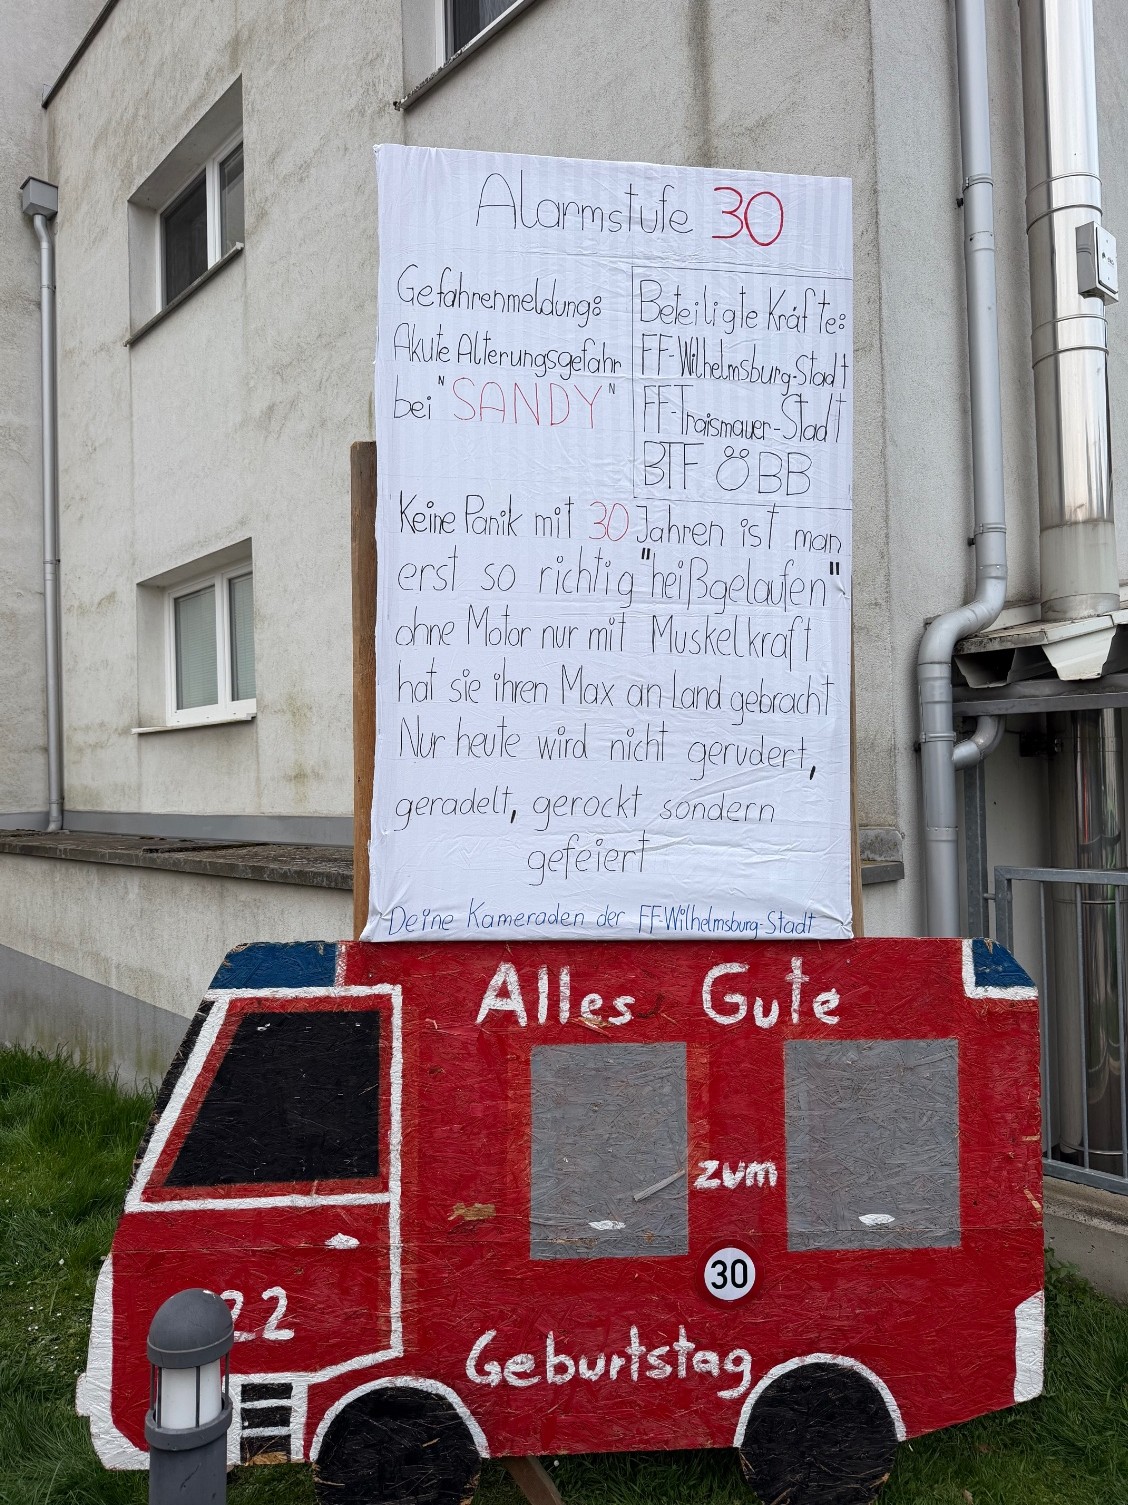 Alarmstufe 30
Gefahrenmeldung:
Akute Alterungsgefahr
bei "SANDY"
Beteiligte Kräfte:
FF-Wilhelmsburg-Stadt
FF-Traismauer-Stadt
BTF ÖBB
Keine Panik mit 30 Jahren ist man
erst so richtig "heißgelaufen"
ohne Motor nur mit Muskelkraft
hat sie ihren Max an Land gebracht
Nur heute wird nicht gerudert,
geradelt, gerockt sondern
gefeiert
Deine Kameraden der FF-Wilhelmsburg-Stadt
Alles Gute
zum
30
Geburtstag